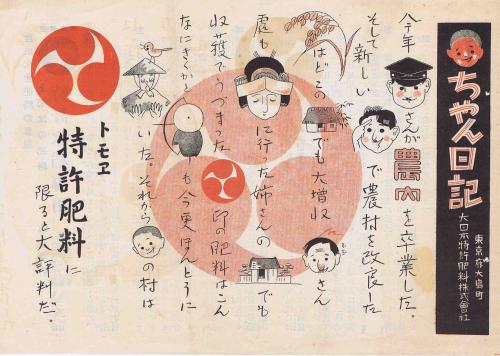 ちゃん日記
東京府大島町
大日本特許肥料株式會社
今年さんが農大を卒業した。
そして新しいで農村を改良した
はどこのでも大増収さん
處もに行った姉さんのでも
収獲でうづまった印の肥料はこん
なにきくかとも今更ほんとうに
いた。それからの村は
トモヱ
特許肥料に
限ると大評判だ。